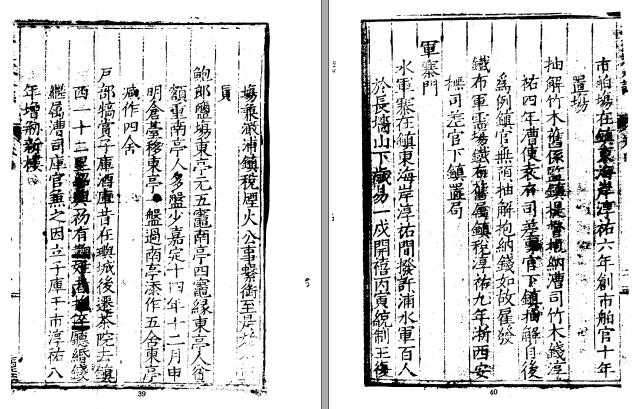 場兼澉浦鎮稅煙火公事繫銜至是
員
鮑郎鹽場東亭元五竈南亭四竈緣東亭人貧
額重南亭人多盤少嘉定十四年十二月申
明倉臺移東亭一盤過南亭添作五舍東亭
減作四舍
戶部犒賞子庫酒庫昔在城後遷茶院去鎮
西一十二里
繼屬漕司庫官兼之因立子庫于市淳祐八
年增創新樓
39
市舶場在鎮東海岸淳祐六年創市舶官十年
置場
抽解竹木舊係監鎮提督概納漕司竹木錢淳
祐四年漕使表有司差東官下鎮抽解自後
為例鎮官無預抽解抱納錢如故屢發
鐵布軍需場鐵布舊屬鎮稅淳祐九年浙西安
撫司差官下鎮置局
軍寨門
水軍寨在鎮東海岸淳祐間撥許浦水軍百人
於長墻山下歲易一戍開禧丙寅統制王復
40